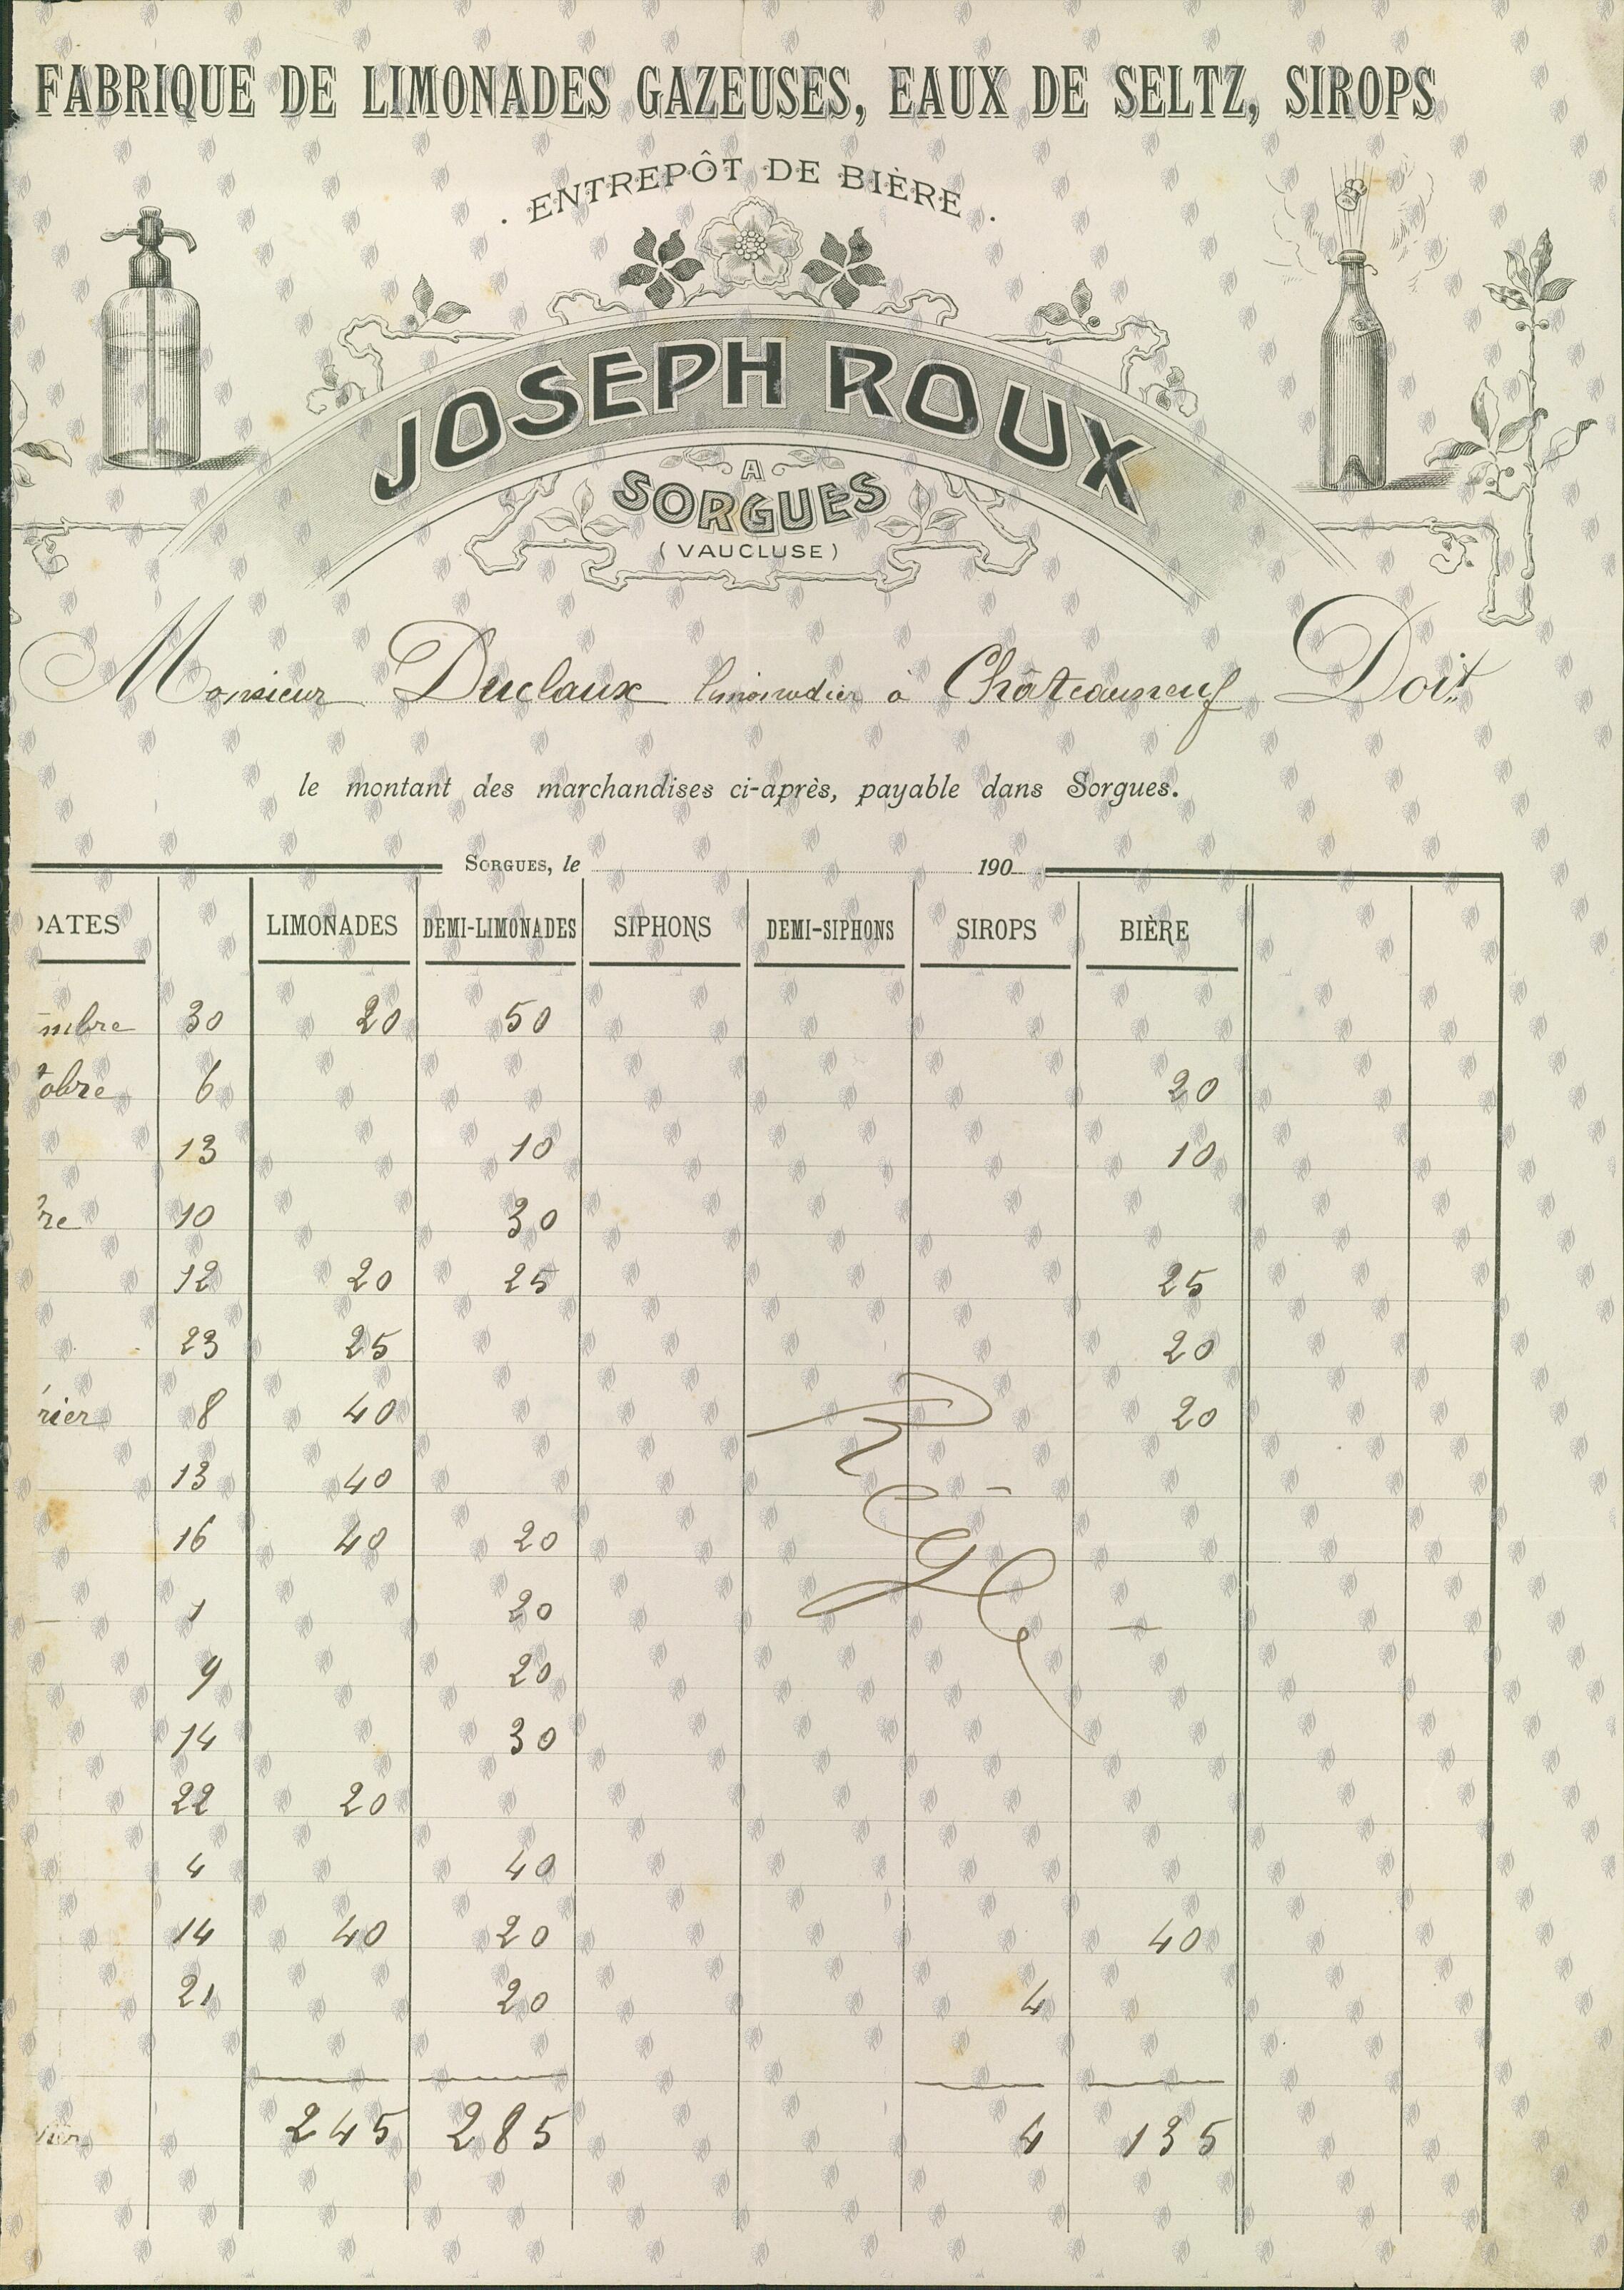 FABRIQUE DE LIMONADES GAZEUSES, EAUX DE SELTZ, SIROPS
· ENTREPÔT DE BIÈRE ·
JOSEPH ROUX
A
SORGUES
(VAUCLUSE)
Monsieur Duclaux limonadier à Châteauneuf Doit
le montant des marchandises ci-après, payable dans Sorgues.
SORGUES, le 190
DATES LIMONADES DEMI-LIMONADES SIPHONS DEMI-SIPHONS SIROPS BIÈRE
mbre 30 20 50
tobre 6 20
13 10 10
bre 10 30
12 20 25 25
23 25 20
rier 8 40 20
13 40
16 40 20
1 20 —
9 20
14 30
22 20
4 40
14 40 20 40
21 20 4
245 285 4 135